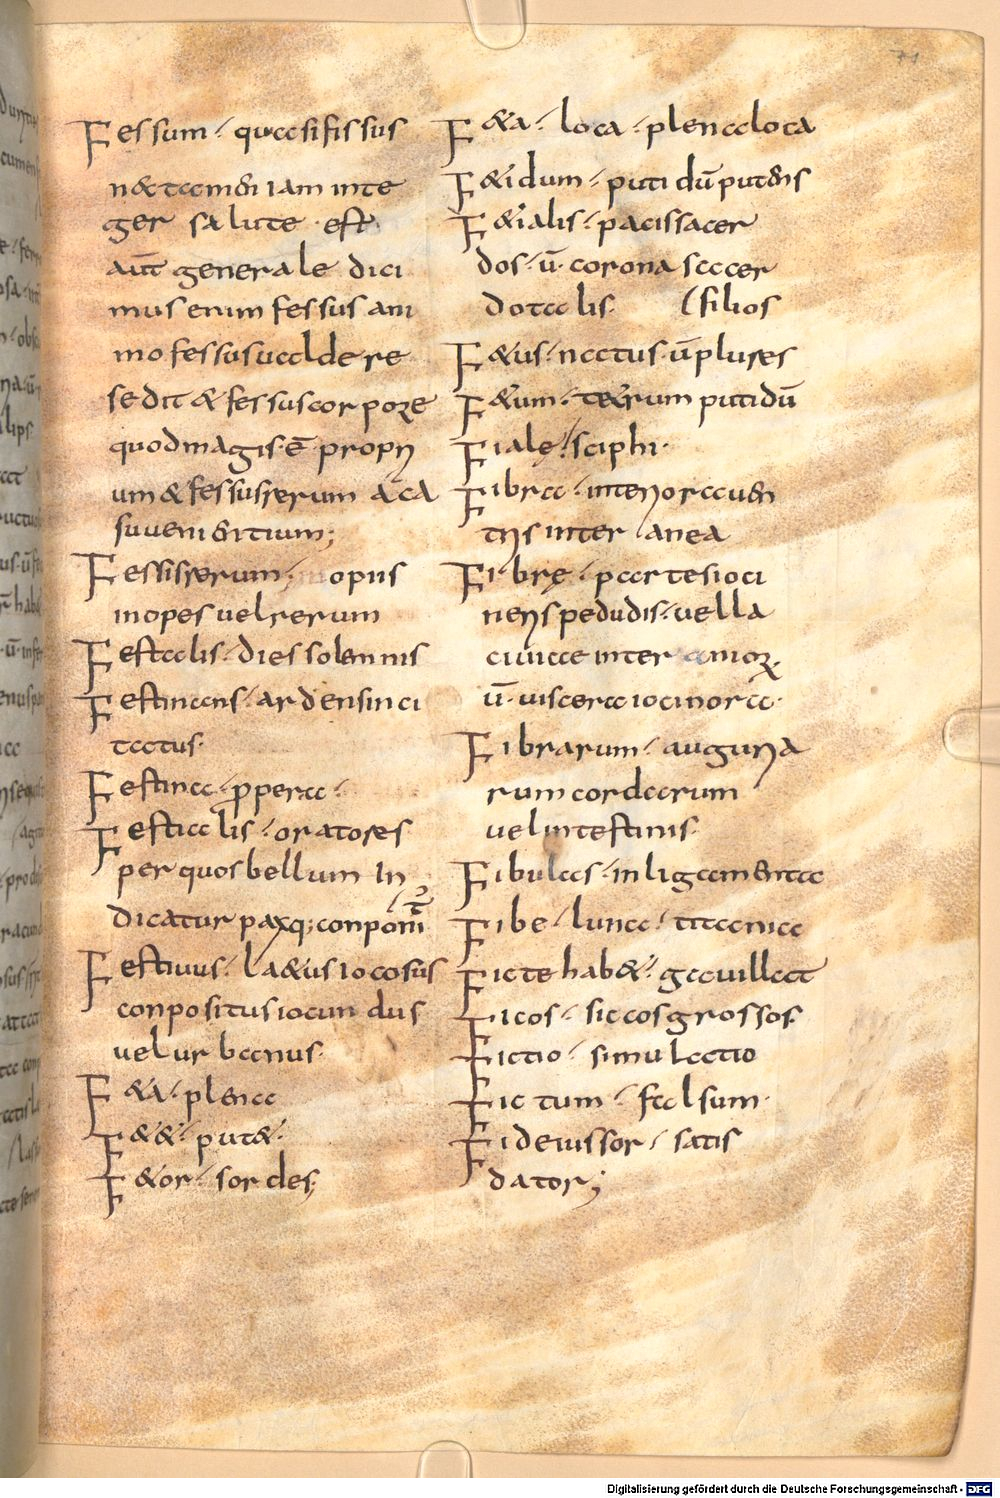 71
Fessum · quasi fissus
n& tam̄ iam inte
ger salute · est
aut̄ generale dici
mus enim fessus ani
mo fessus ualde re
sedit & fessus corpore
quod magis · ē propri
um & fessus rerum a ca
su uenientium;
Fessis rerum; opus
inopes uel rerum
Festalis · dies solemnis
Festinans · ardens inci
tatus ·
Festina · ppera ·
Festialis · oratores
per quos bellum In
dicatur paxq; conponit̄
Festiuus · la&us iocosus
conpositus iocundus
uel urbanus ·
F&a · plena
F&& · put& ·
F&or · sordes;
F&a · loca · plena loca
F&idum · putidū putens
F&ialis · pacis sacer
dos · ū · corona sacer
dotalis · (filios
F&us · natus · ū plures
F&um · tetrum putidū
Fialę · sciphi ·
Fibra · interiora uen
tris interanea
Fibrę · partes ioci
neris pedudis · uel la
ciuiae inter
ū · uiscera iocinora ·
Fibrarum · auguria
rum cordarum
uel intestinis ·
Fibulas · inligamenta
Fibe · luna · titania
Ficte hab& · gauillat
Ficos · siccos grossos
Fictio · simulatio
Fictum · falsum ·
Fideiussor · satis
dator;
Digitalisierung gefördert durch die Deutsche Forschungsgemeinschaft - DFG